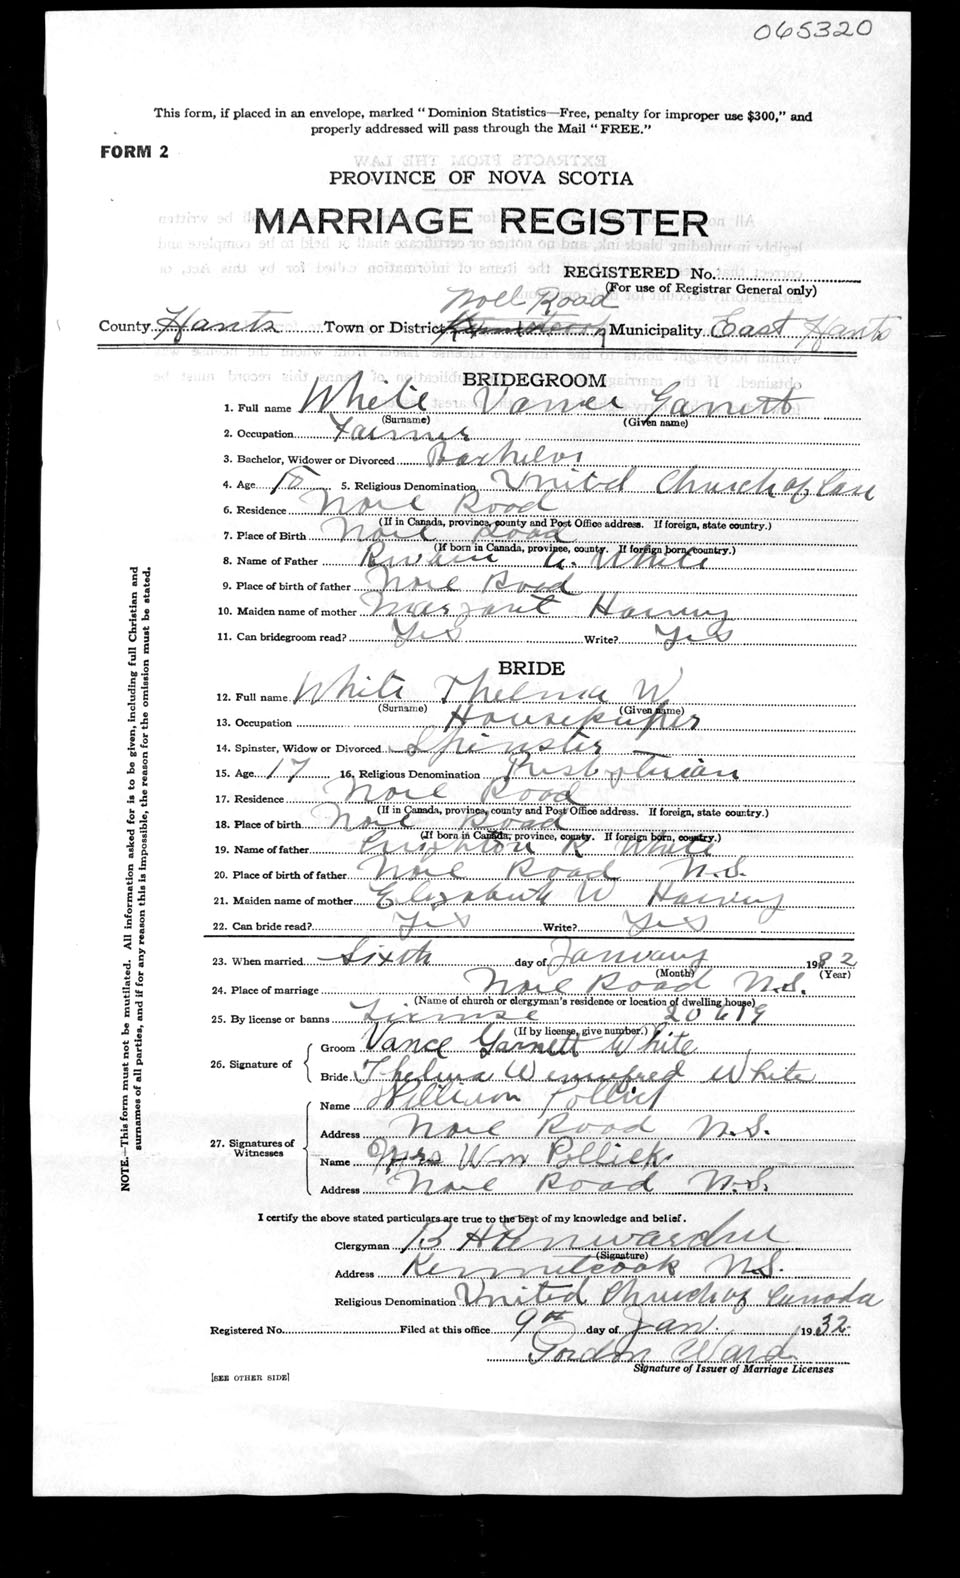 065320
This form, if placed in an envelope, marked "Dominion Statistics—Free, penalty for improper use $300," and
properly addressed will pass through the Mail "FREE."
FORM 2
PROVINCE OF NOVA SCOTIA
MARRIAGE REGISTER
REGISTERED No.
(For use of Registrar General only)
Noel Road
County Hants Town or District Municipality East Hants
BRIDEGROOM
1. Full name White Vance Garnett
(Surname) (Given name)
2. Occupation Farmer
3. Bachelor, Widower or Divorced Bachelor
4. Age 5. Religious Denomination United Church of Can
6. Residence Noel Road
(If in Canada, province, county and Post Office address. If foreign, state country.)
7. Place of Birth Noel Road
(If born in Canada, province, county. If foreign born, country.)
8. Name of Father A. White
9. Place of birth of father Noel Road
10. Maiden name of mother Margaret Harvey
11. Can bridegroom read? Yes Write? Yes
BRIDE
12. Full name White Thelma W
(Surname) (Given name)
13. Occupation Housekeeper
14. Spinster, Widow or Divorced Spinster
15. Age 17 16. Religious Denomination Presbyterian
17. Residence Noel Road
(If in Canada, province, county and Post Office address. If foreign, state country.)
18. Place of birth Noel Road
(If born in Canada, province, county. If foreign born, country.)
19. Name of father Creighton R White
20. Place of birth of father Noel Road N.S.
21. Maiden name of mother Elizabeth W Harvey
22. Can bride read? Yes Write? Yes
23. When married Sixth day of January 1932
(Month) (Year)
24. Place of marriage Noel Road N.S.
(Name of church or clergyman's residence or location of dwelling house)
25. By license or banns License 20619
(If by license, give number.)
26. Signature of
Groom Vance Garnett White
Bride Thelma Winnifred White
27. Signatures of Witnesses
Name William Pollick
Address Noel Road N.S.
Name Mrs Wm Pollick
Address Noel Road N.S.
I certify the above stated particulars are true to the best of my knowledge and belief.
Clergyman B H
(Signature)
Address Kennetcook N.S.
Religious Denomination United Church of Canada
Registered No. Filed at this office 9th day of Jan. 1932
Gordon Ward
Signature of Issuer of Marriage Licenses
[SEE OTHER SIDE]
NOTE.—This form must not be mutilated. All information asked for is to be given, including full Christian and
surnames of all parties, and if for any reason this is impossible, the reason for the omission must be stated.